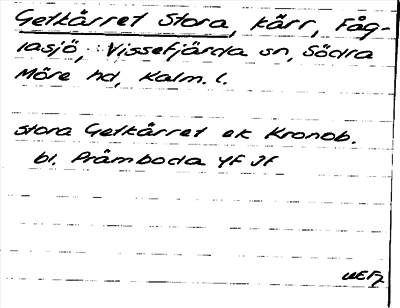 Getkärret Stora, kärr, Fåg-
lasjö, Vissefjärda sn, Södra
Möre hd, Kalm. l.
stora Getkärret ek Kronob.
bl. Främboda YF JF